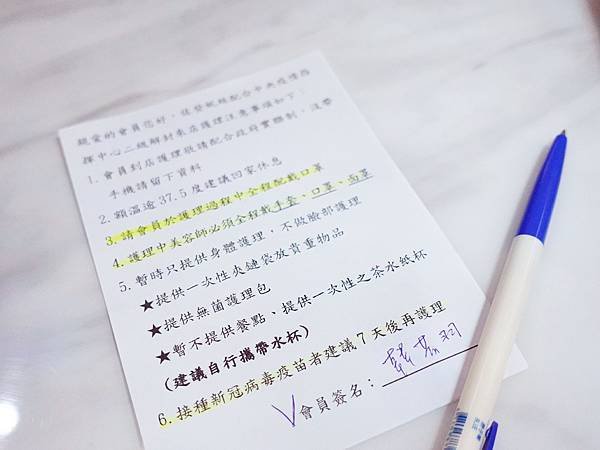 親愛的會員您好，佳登妮絲配合中央疫情指
揮中心二級解封來店護理注意事項如下：
1. 會員到店護理敬請配合政府實聯制，沒帶
手機請留下資料
2. 額溫逾37.5度建議回家休息
3. 請會員於護理過程中全程配戴口罩
4. 護理中美容師必須全程戴手套、口罩、面罩
5. 暫時只提供身體護理，不做臉部護理
★提供一次性夾鏈袋放貴重物品
★提供無菌護理包
★暫不提供餐點、提供一次性之茶水紙杯
(建議自行攜帶水杯)
6. 接種新冠病毒疫苗者建議7天後再護理
V會員簽名：